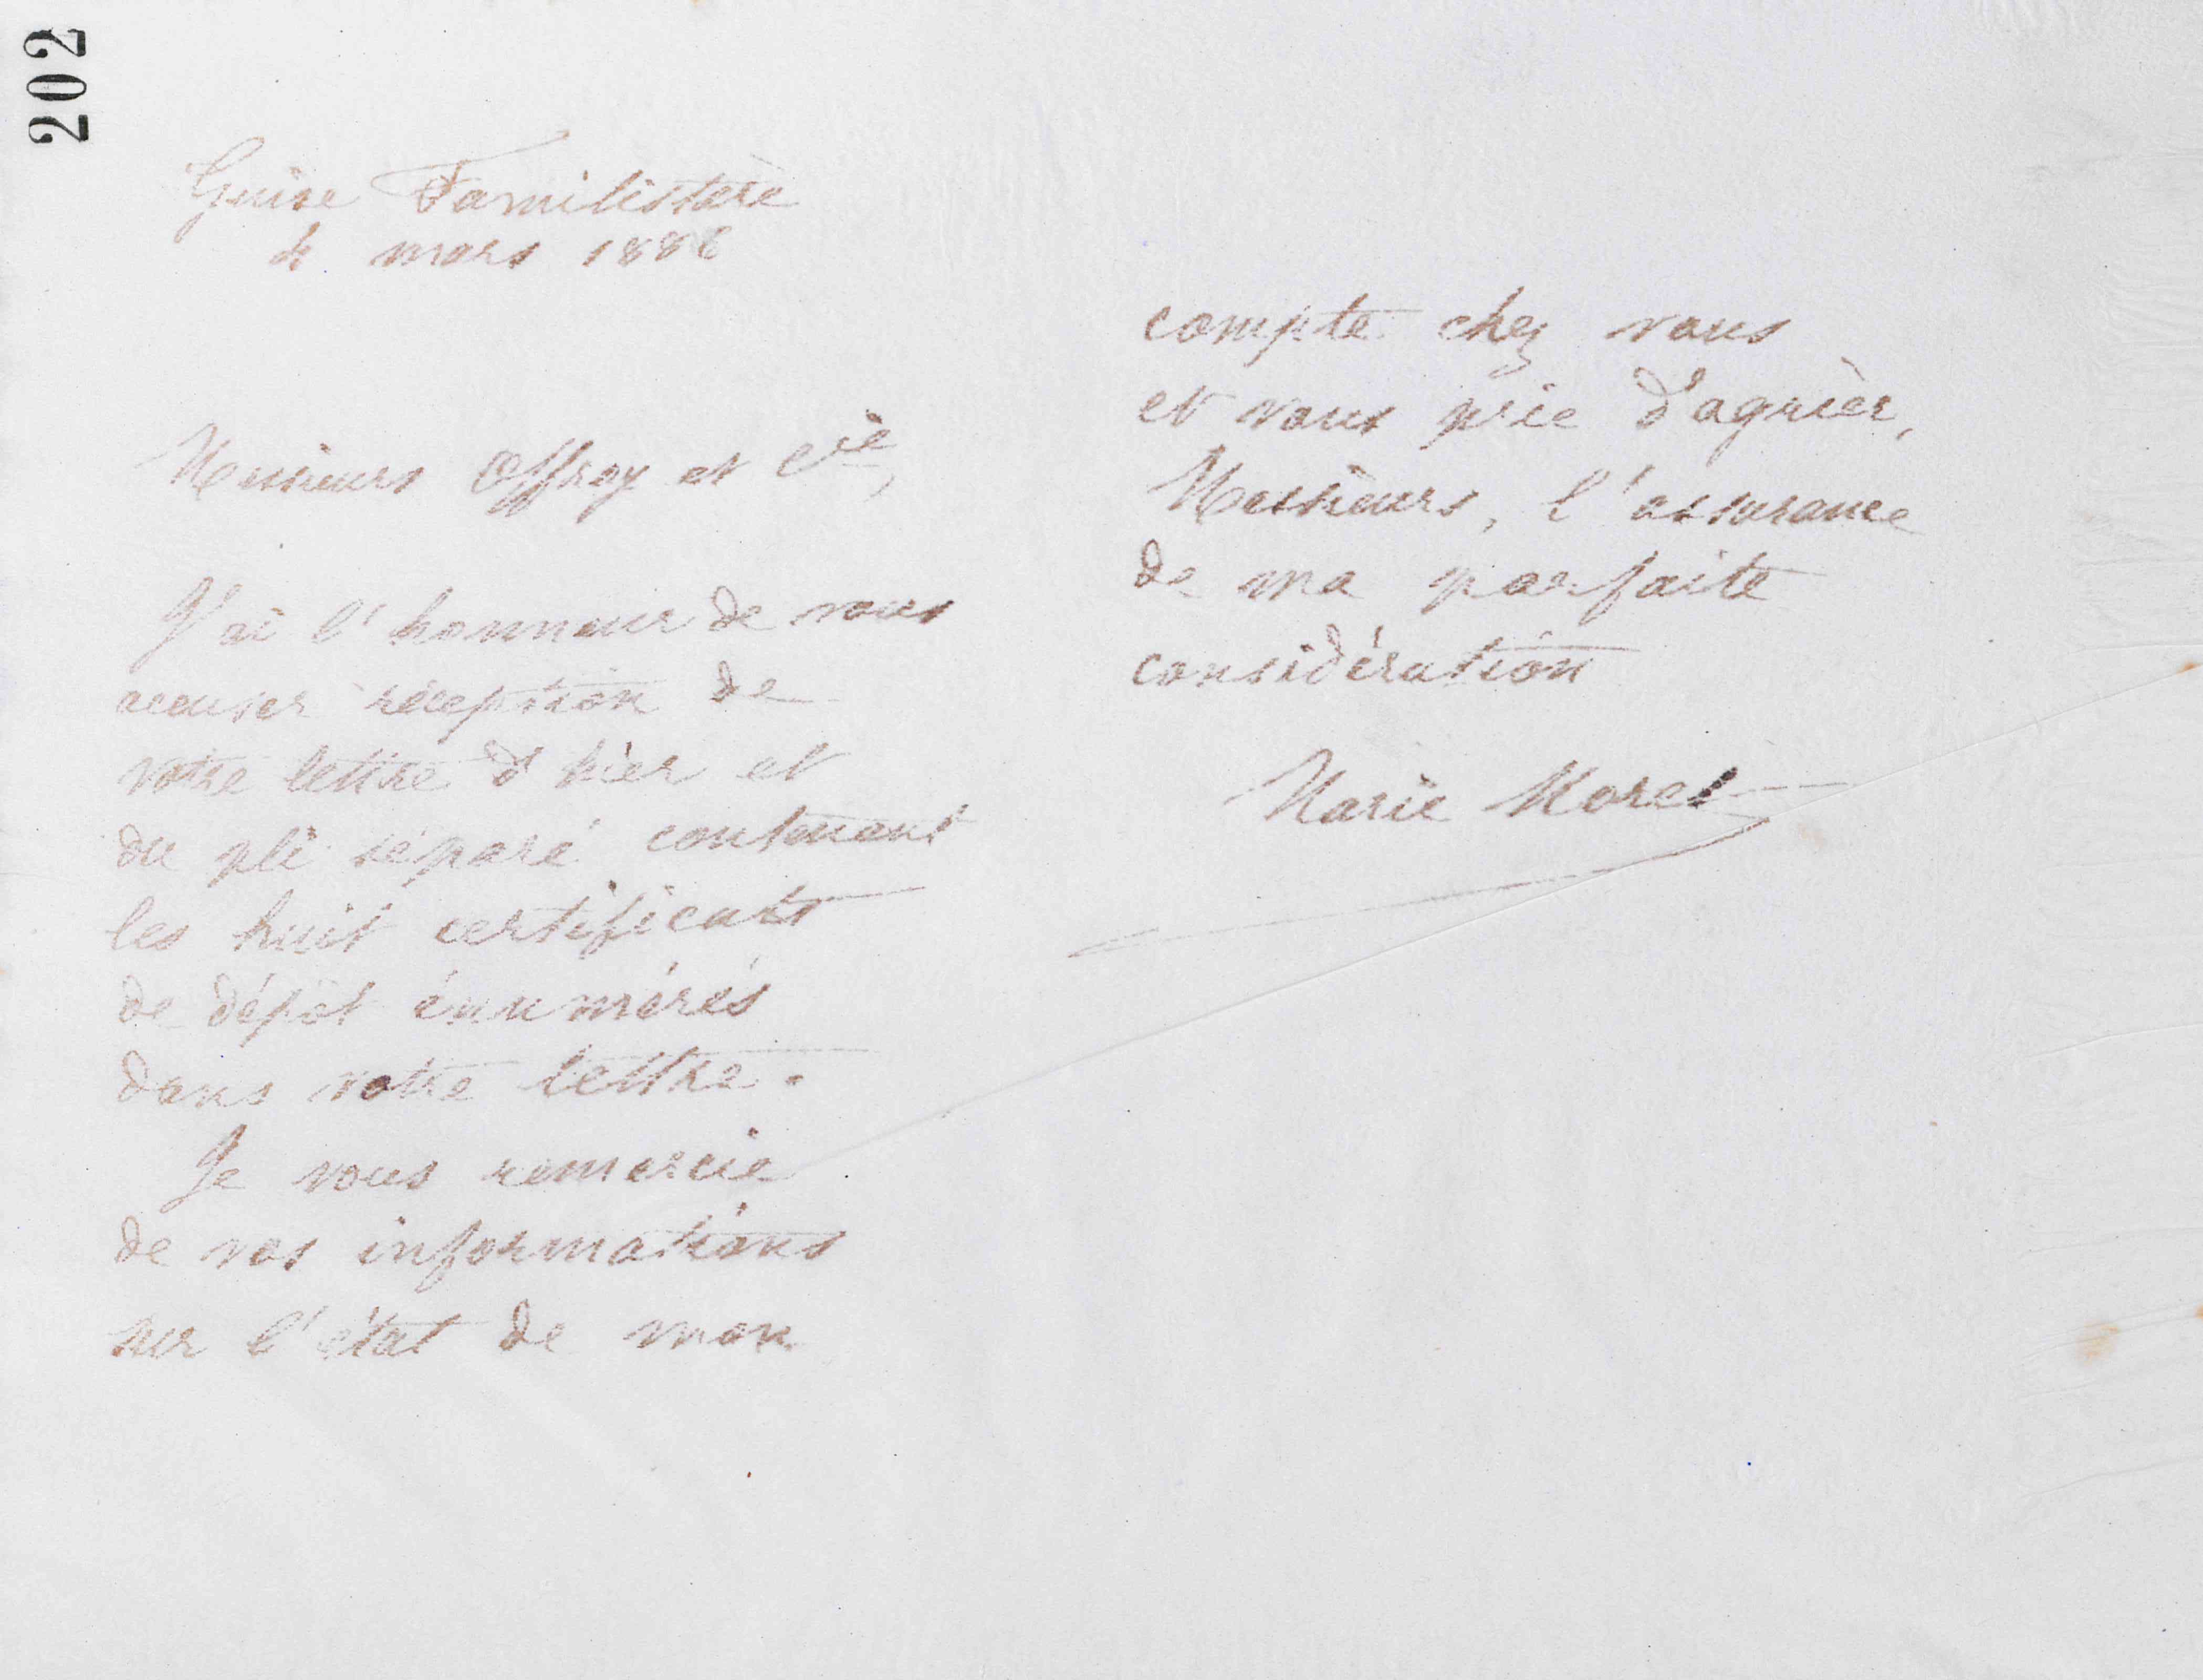 202
Guise Familistère
4 mars 1886
Messieurs Offroy et Cie,
J'ai l'honneur de vous
accuser réception de
votre lettre d'hier et
du pli séparé contenant
les huit certificats
de dépôt énumérés
dans votre lettre.
Je vous remercie
de vos informations
sur l'état de mon
compte chez vous
et vous prie d'agréer,
Messieurs, l'assurance
de ma parfaite
considération
Marie Moret